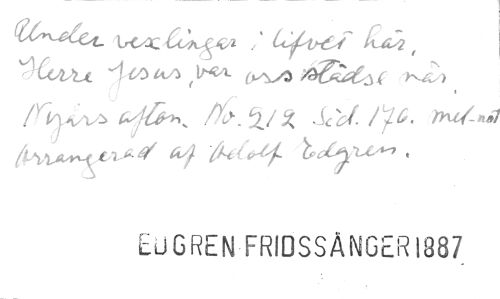 Under vexlingar i lifvet här,
Herre Jesus, var oss städse när.
Nyårs afton. No. 212 Sid. 170. mel-not
Arrangerad af Adolf Edgren.
EDGREN FRIDSSÅNGER 1887